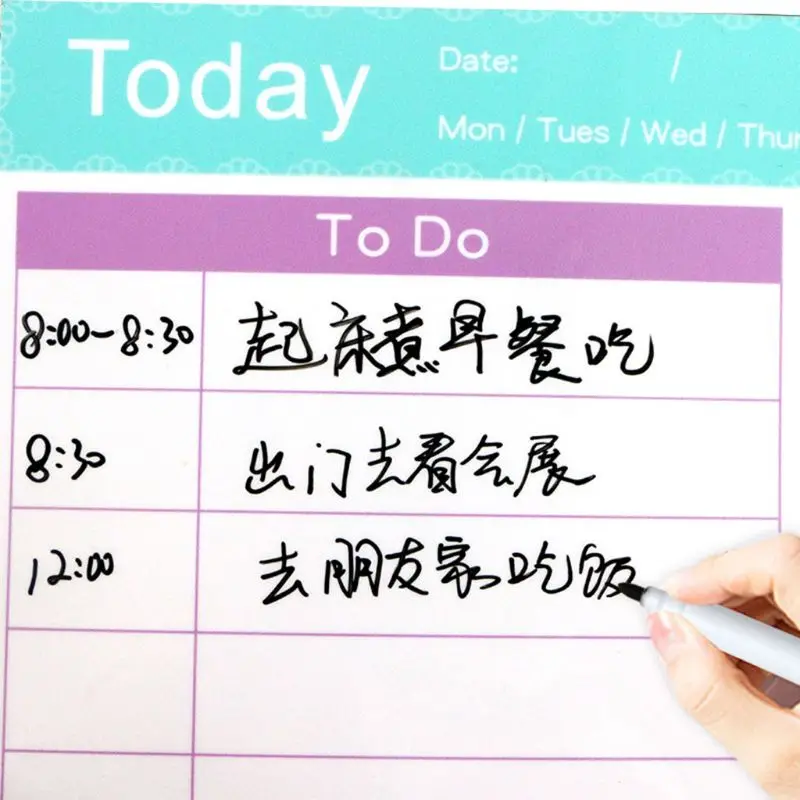 Today
Date: /
Mon / Tues / Wed / Thur
To Do
8:00-8:30 起床煮早餐吃
8:30 出门去看会展
12:00 去朋友家吃饭